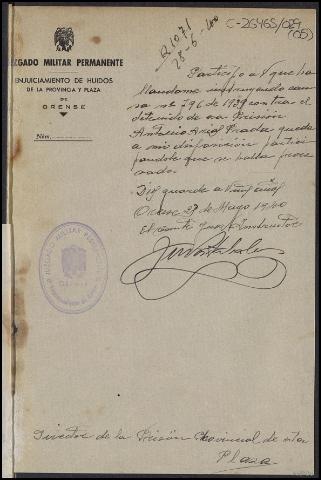 C-26465/029
(05)
R 1071
28-6-40
JUZGADO MILITAR PERMANENTE
ENJUICIAMIENTO DE HUIDOS
DE LA PROVINCIA Y PLAZA
DE
ORENSE
Núm.
Participo a V. que ha
llandome instruyendo cau
sa nº 796 de 1939 contra el
detenido de esa Prisión
Antonio Prada queda
a mi disposicion partici
pandole que se halla proce
sado.
Dios guarde a V. muchos años
Orense 27 de Mayo 1940
El Juez Instructor
Director de la Prisión Provincial de esta
Plaza